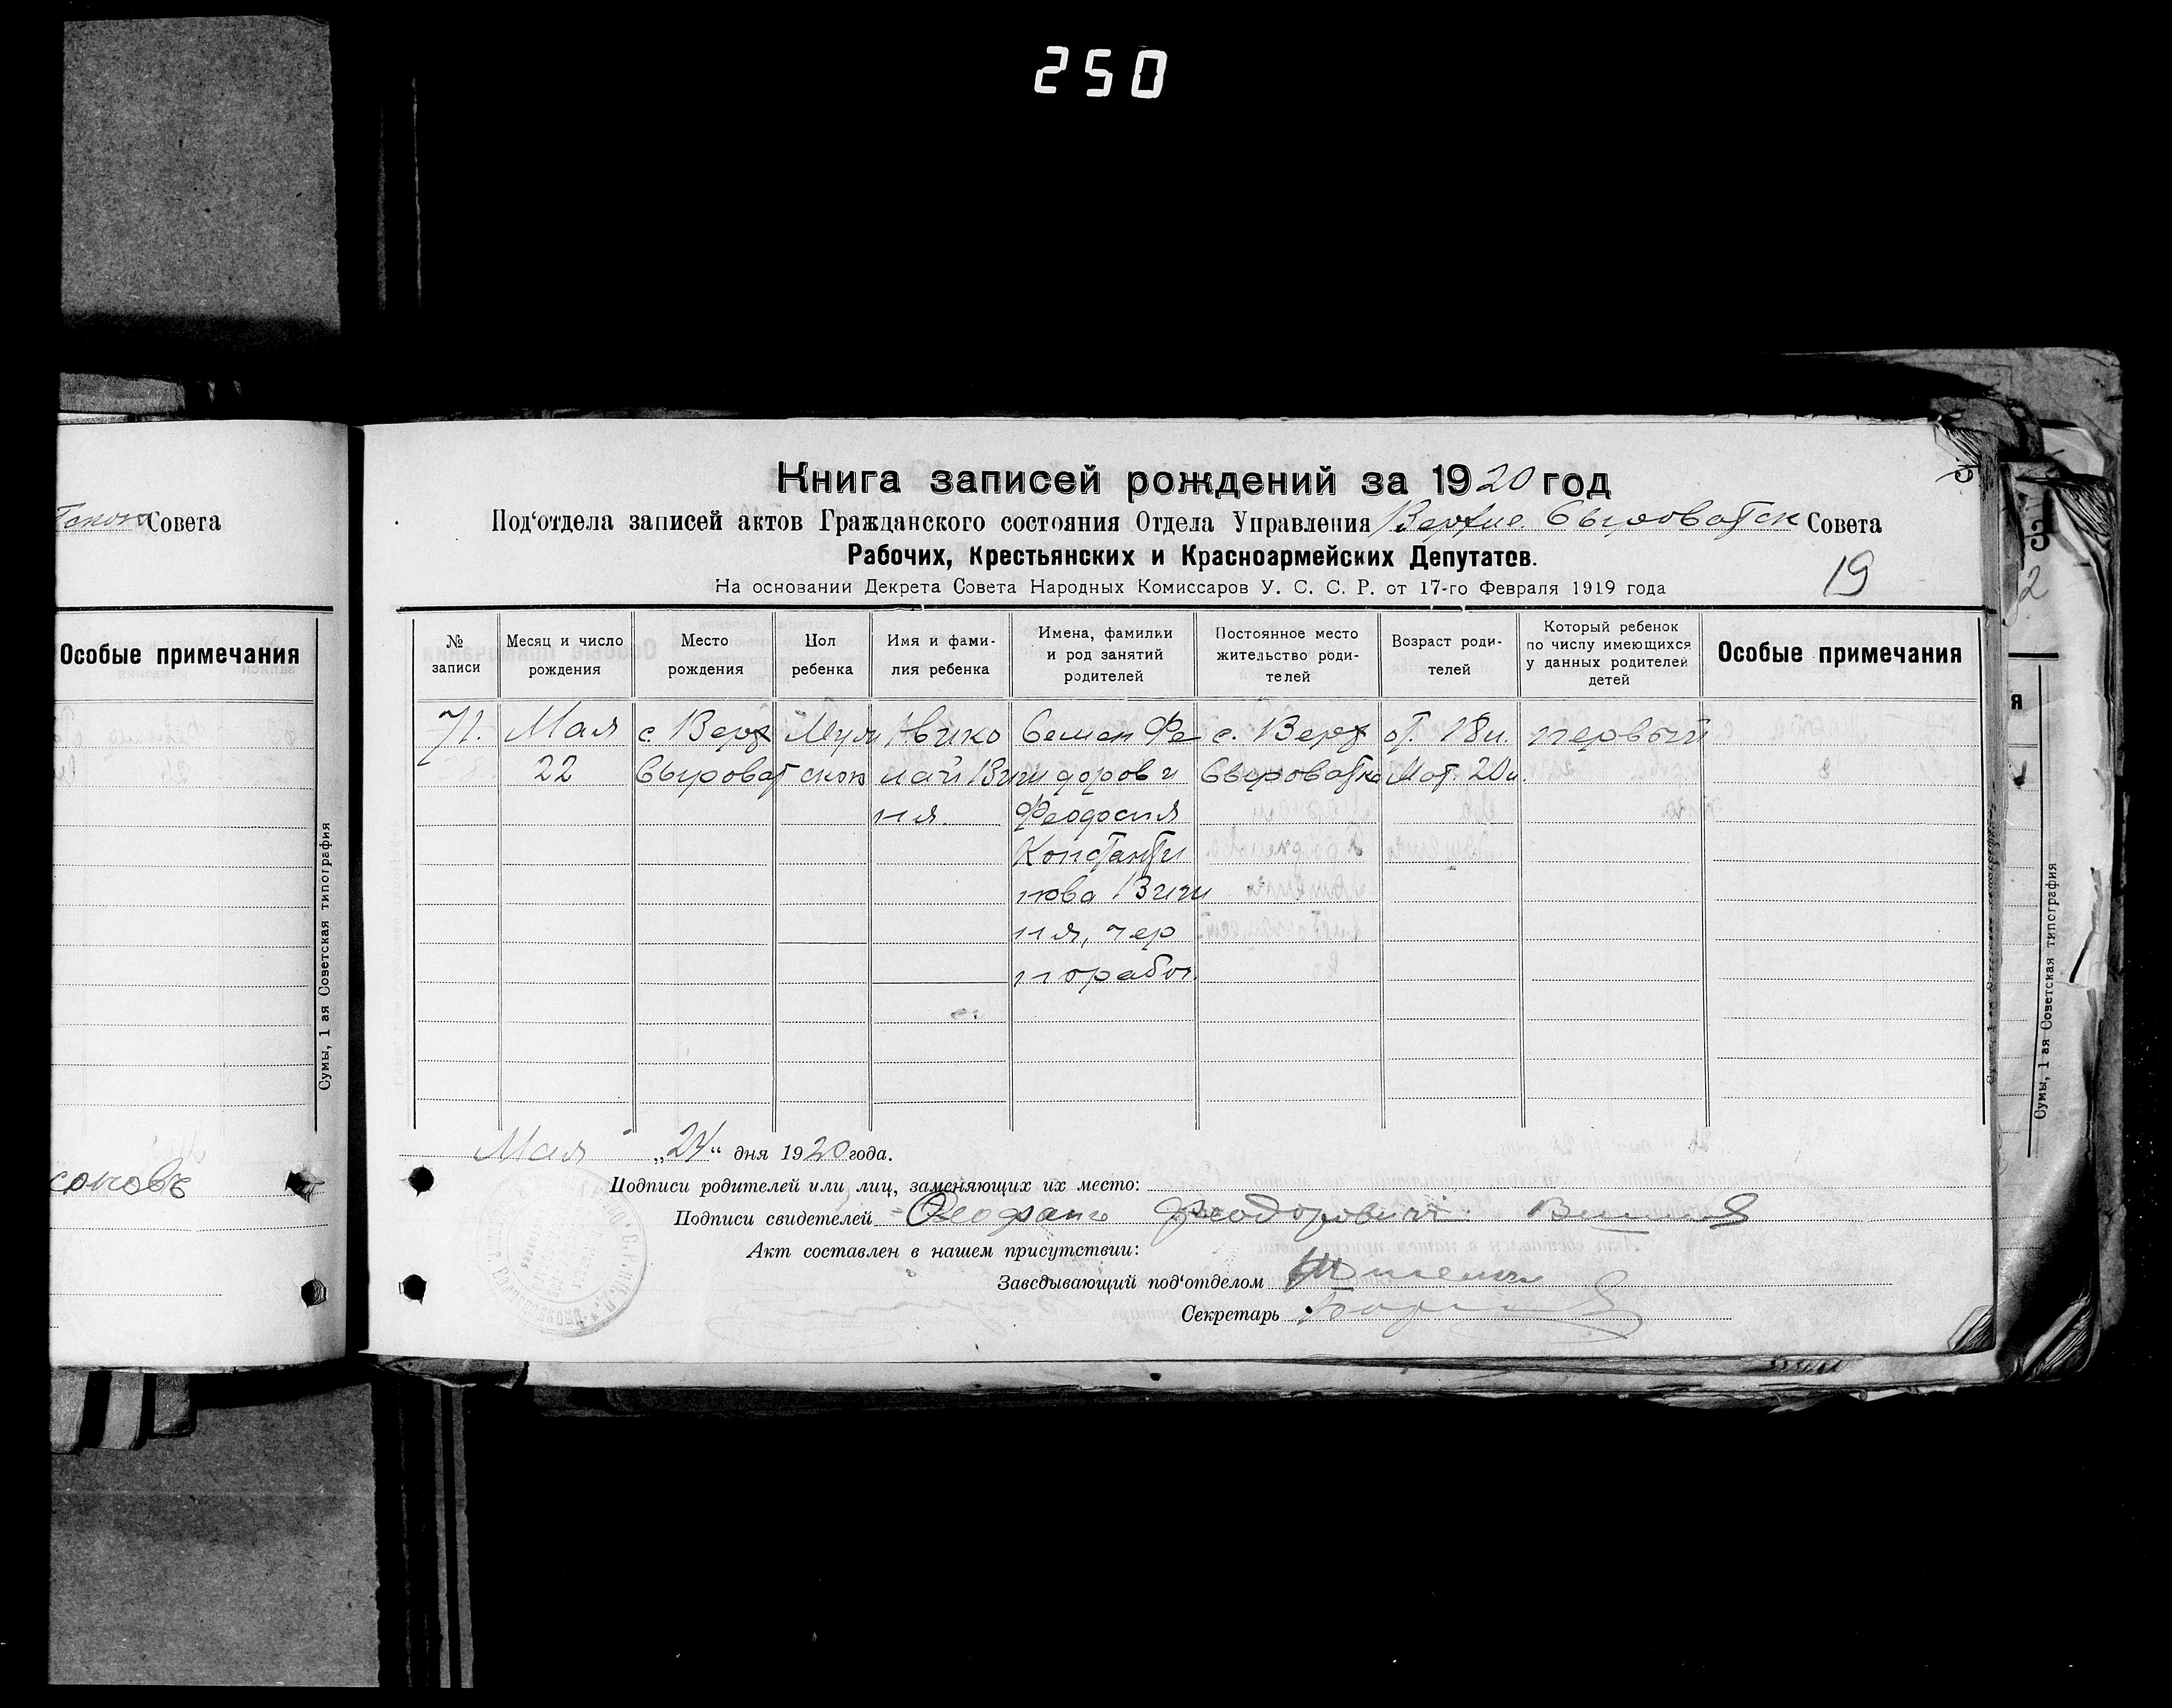 250
Совета
Особые примечания
Сумы, 1 ая Советская типография
Книга записей рождений за 1920 год
Под'отдела записей актов Гражданского состояния Отдела Управления Верхне Сыроватск Совета
Рабочих, Крестьянских и Красноармейских Депутатов.
На основании Декрета Совета Народных Комиссаров У. С. С. Р. от 17-го Февраля 1919 года
19
№ записи
Месяц и число рождения
Место рождения
Пол ребенка
Имя и фами- лия ребенка
Имена, фамилии и род занятий родителей
Постоянное место жительство роди- телей
Возраст роди- телей
Который ребенок по числу имеющихся у данных родителей детей
Особые примечания
71. Мая с. Верх Муж Нико Семен Фе с. Верх от. 18 л. первый
22 Сыроват ской лай Виш доров и Сыроватка Мат. 20 л.
ня. Феодосия
Константи
нова Виш
ня, чер
норабоч.
Мая „24“ дня 1920 года.
Подписи родителей или лиц, заменяющих их место:
Подписи свидетелей Феодоровичъ Вишня
Акт составлен в нашем присутствии:
Заведывающий под'отделом
Секретарь
3
2
я
Сумы, 1 ая Советская типография